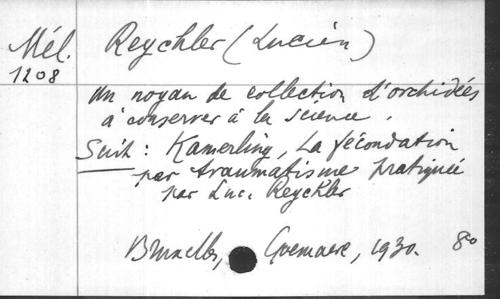 Mél.
1208
Reychler (Lucien)
Un noyau de collection d'orchidées
à conserver à la science.
Suit : Kamerling, La fécondation
par traumatisme pratiquée
par Luc. Reychler
Bruxelles, Goemaere, 1930. 8º